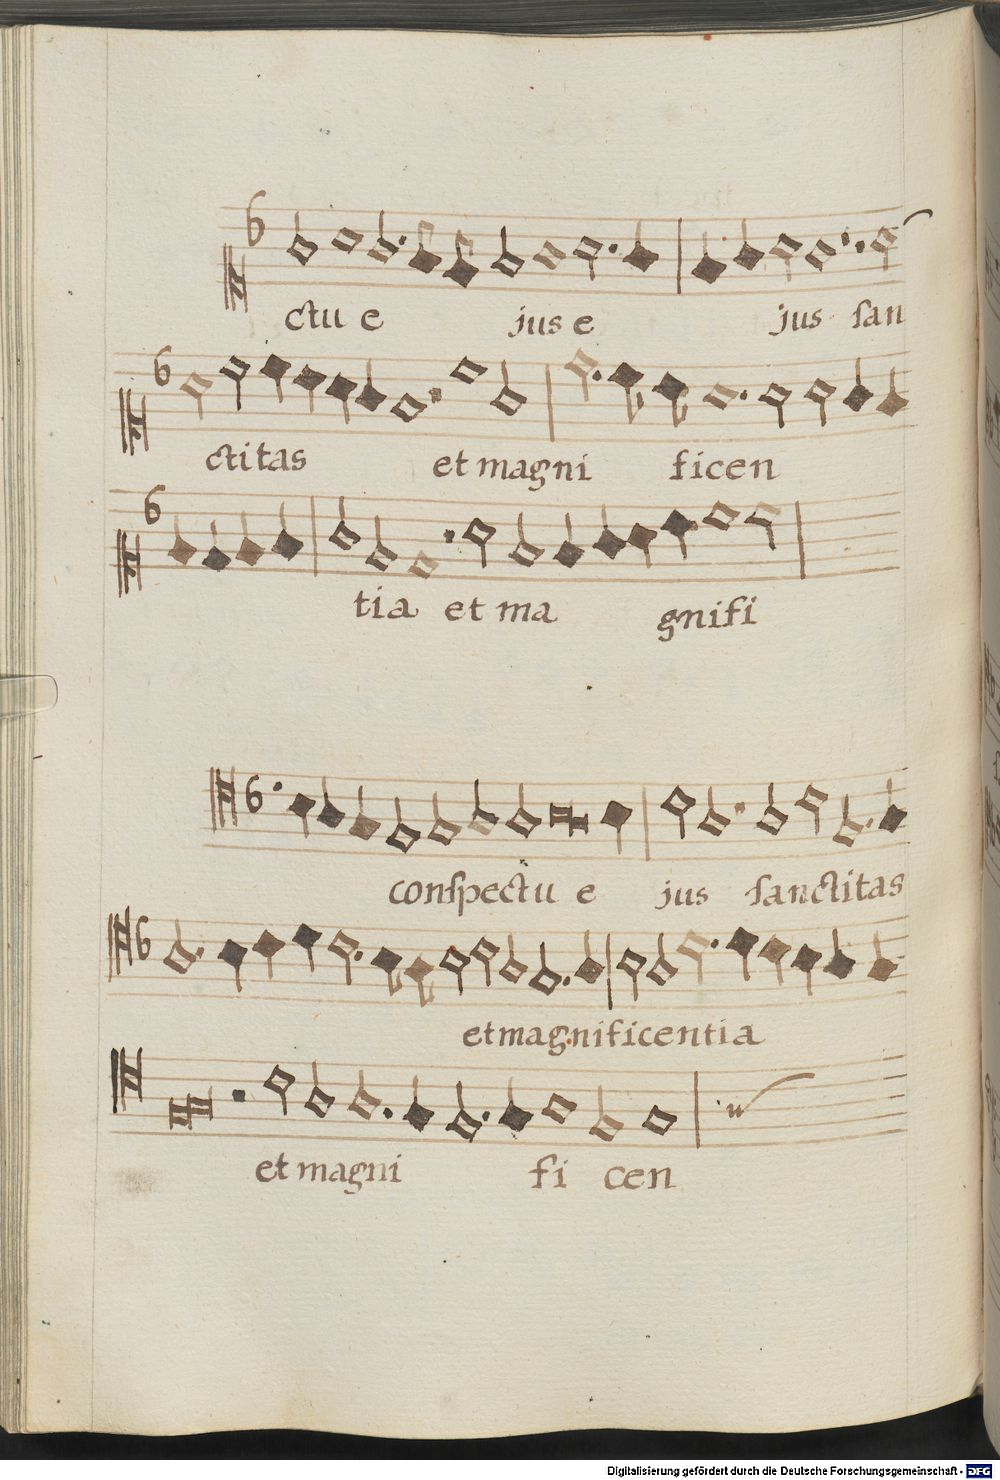 ctu e jus e jus ſan
ctitas et magni ficen
tia et ma gnifi
conſpectu e jus ſanctitas
et magnificentia
et magni fi cen
Digitalisierung gefördert durch die Deutsche Forschungsgemeinschaft - DFG